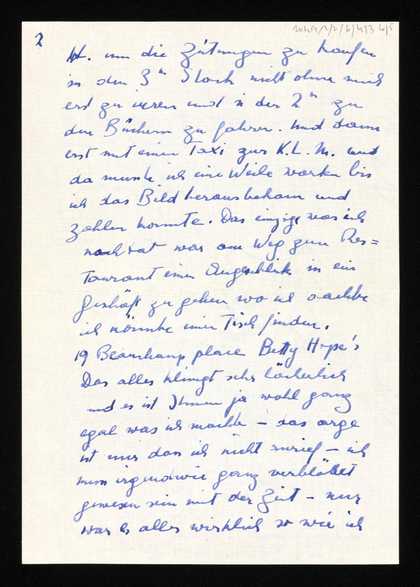 2
st. um die Zeitungen zu kaufen
in den 3ten Stock nicht ohne mich
erst zu irren und in den 2ten zu
den Büchern zu fahren. Und dann
erst mit einem Taxi zur K.L.M. und
da musste ich eine Weile warten bis
ich das Bild herausbekam und
zahlen konnte. Das einzige was ich
noch tat war am Weg zum Res=
taurant einen Augenblick in ein
Geschäft zu gehen wo ich dachte
ich könnte einen Tisch finden.
19 Beauchamp place Betty Hope's
Das alles klingt sehr lächerlich
und es ist Ihnen ja wohl ganz
egal was ich machte – das arge
ist nur dass ich nicht anrief – ich
muss irgendwie ganz verblödet
gewesen sein mit der Zeit – nur
war es alles wirklich so wie ich